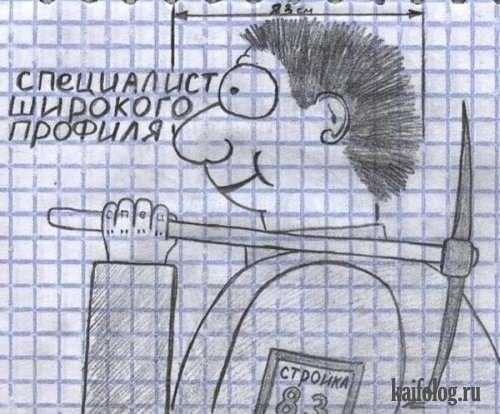 83 см
СПЕЦИАЛИСТ
ШИРОКОГО
ПРОФИЛЯ
СТРОЙКА
83
kaifolog.ru